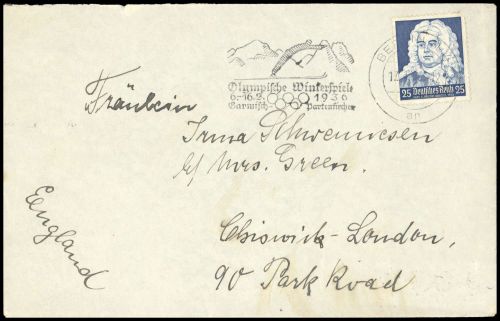 Olympische Winterspiele
6.-16.2. 1936
Garmisch-Partenkirchen
BE
25 Deutsches Reich 25
an
Fräulein
Irma Schwennesen
c/o Mrs. Green.
Chiswick-London,
90 Park Road
England